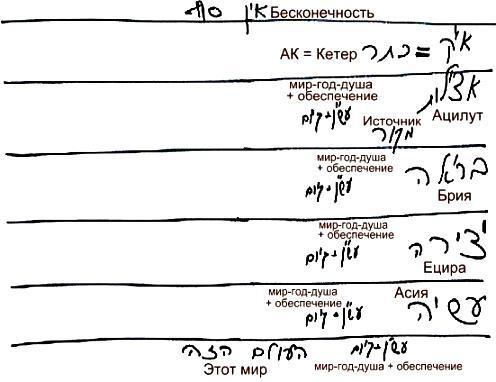 אין סוף Бесконечность
АК = Кетер א״ק = כתר
мир-год-душа
+ обеспечение
אצילות
עש״ן + קיום
Источник Ацилут
מקור
мир-год-душа
+ обеспечение
בריאה
עש״ן + קיום
Брия
мир-год-душа
+ обеспечение
יצירה
עש״ן + קיום
Ецира
Асия
мир-год-душа
+ обеспечение
עשיה
עש״ן + קיום
העולם הזה עש״ן + קיום
Этот мир мир-год-душа + обеспечение